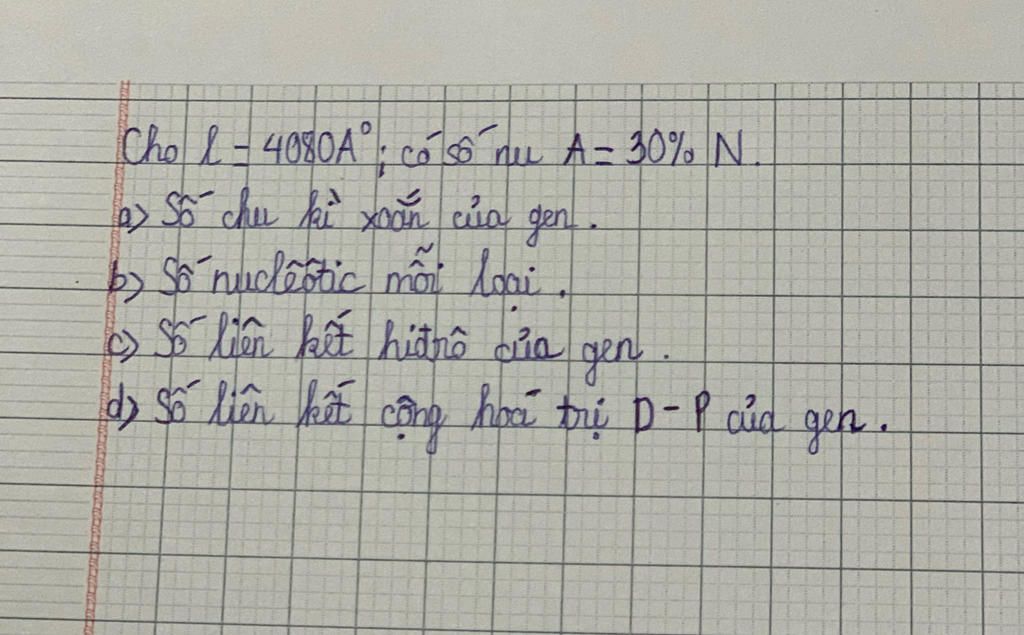 Cho l = 4080A°; có số nu A = 30% N.
a) Số chu kì xoắn của gen.
b) Số nuclêôtic mỗi loại.
c) Số liên kết hiđrô của gen.
d) Số liên kết cộng hoá trị D-P của gen.